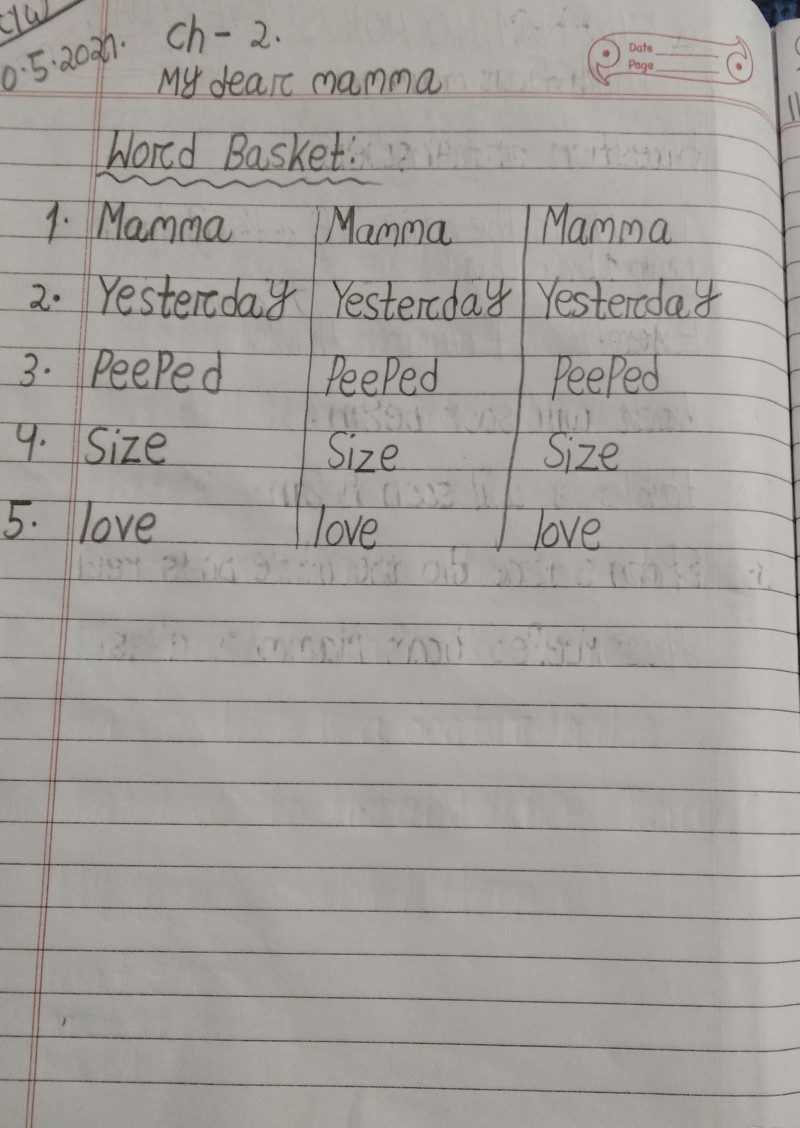 C/W
Ch - 2.
0.5.2021.
My dear mamma
Date
Page
Word Basket:
1. Mamma Mamma Mamma
2. Yesterday Yesterday Yesterday
3. PeePed PeePed PeePed
4. Size Size Size
5. love love love